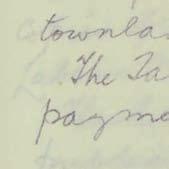 townla
The Ta
payme